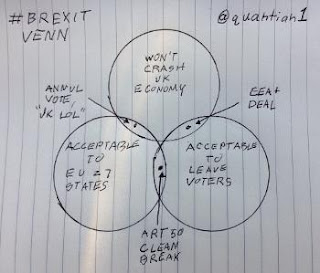 #BREXIT
VENN
@quantian1
WON'T
CRASH
UK
ECONOMY
ANNUL
VOTE,
"UK LOL"
EEA+
DEAL
ACCEPTABLE
TO
EU27
STATES
ACCEPTABLE
TO
LEAVE
VOTERS
ART 50
CLEAN
BREAK